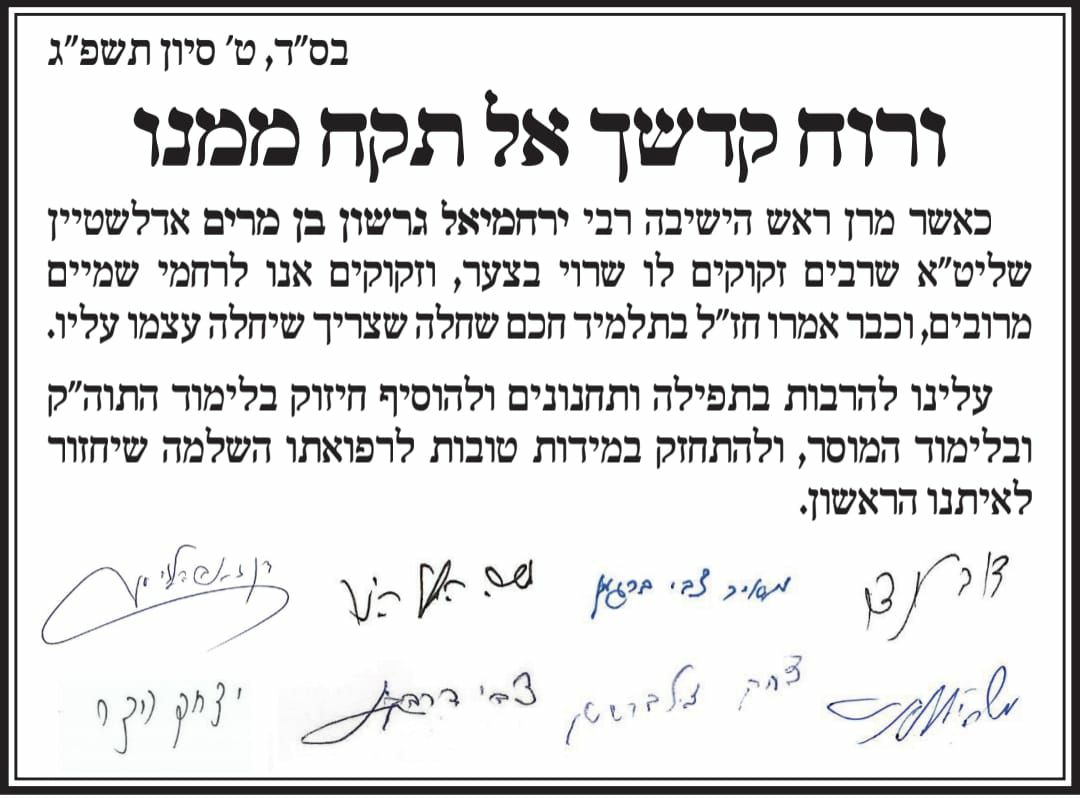 בס"ד, ט' סיון תשפ"ג
ורוח קדשך אל תקח ממנו
כאשר מרן ראש הישיבה רבי ירחמיאל גרשון בן מרים אדלשטיין
שליט"א שרבים זקוקים לו שרוי בצער, וזקוקים אנו לרחמי שמיים
מרובים, וכבר אמרו חז"ל בתלמיד חכם שחלה שצריך שיחלה עצמו עליו.
עלינו להרבות בתפילה ותחנונים ולהוסיף חיזוק בלימוד התוה"ק
ובלימוד המוסר, ולהתחזק במידות טובות לרפואתו השלמה שיחזור
לאיתנו הראשון.
דוב לנדו משה הלל הירש
מאיר צבי ברגמן
יצחק הקר צבי דרבקין צילברשטיין